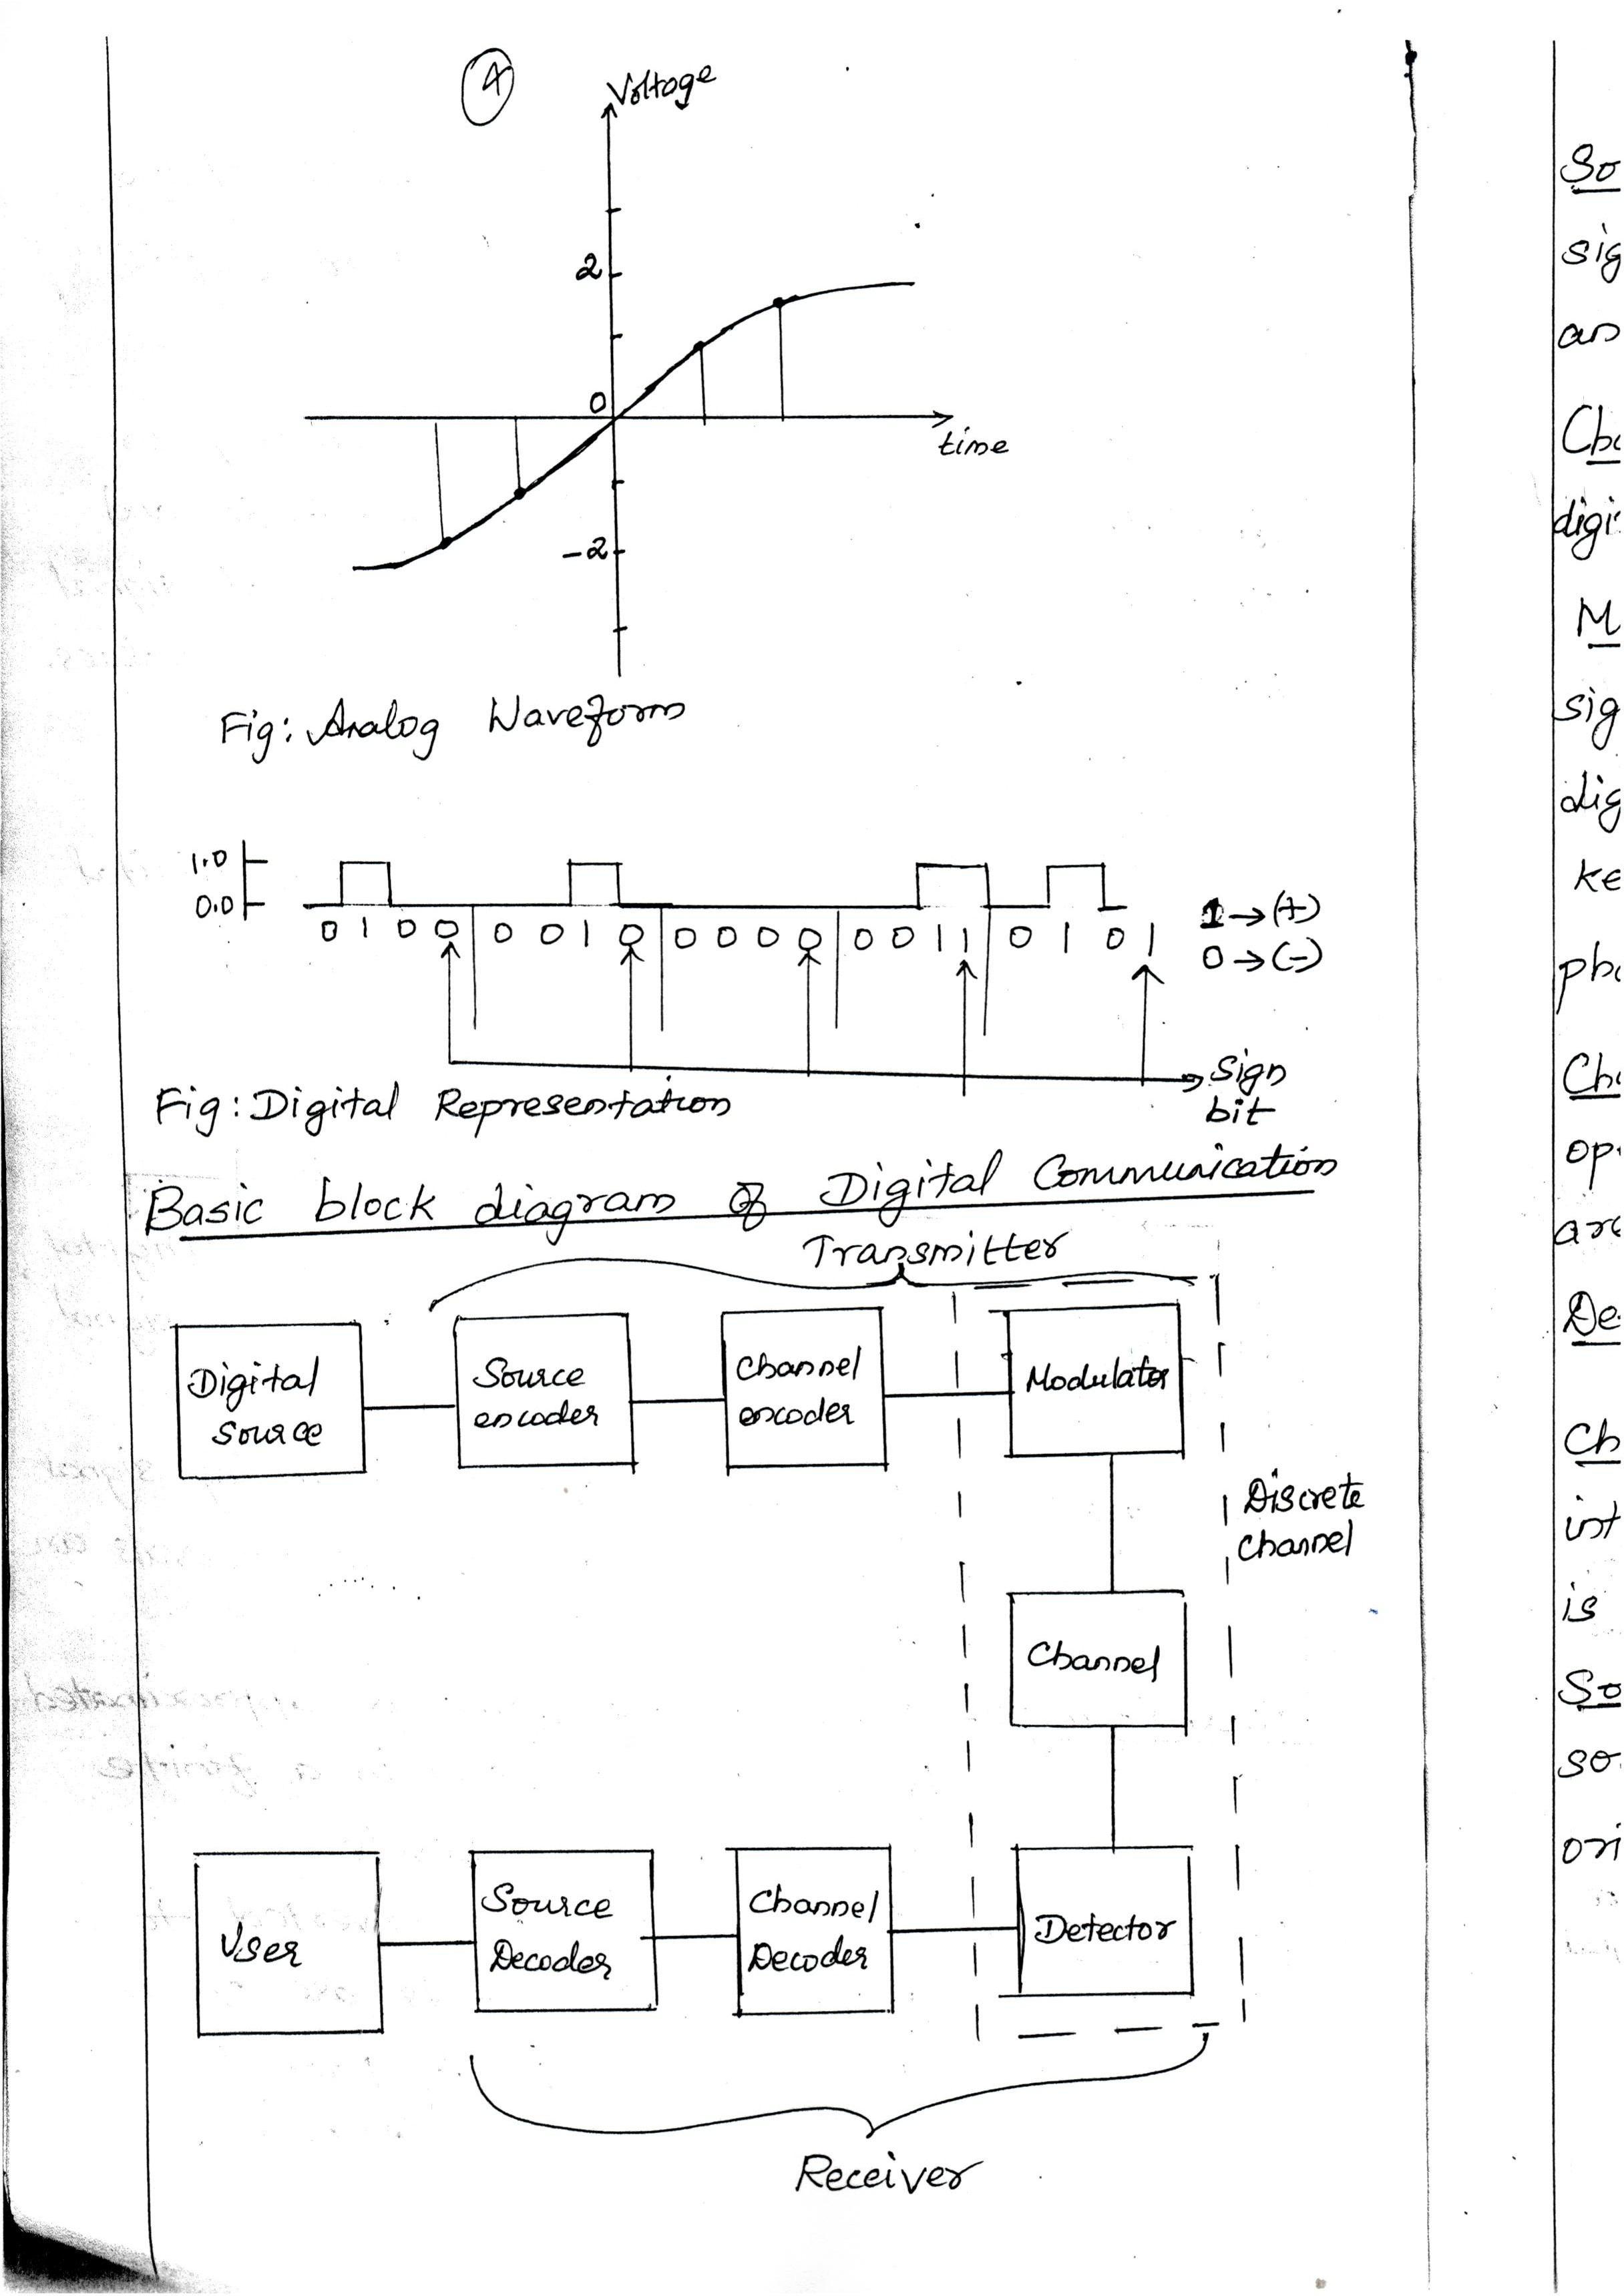 4
Voltage
2
0
time
-2
Fig: Analog Waveform
1.0
0.0
0 1 0 0 0 0 1 0 0 0 0 0 0 0 1 1 0 1 0 1
1 → (+)
0 → (-)
Sign
bit
Fig: Digital Representation
Basic block diagram of Digital Communication
Transmitter
Digital
Source
Source
encoder
Channel
encoder
Modulator
Discrete
Channel
Channel
User
Source
Decoder
Channel
Decoder
Detector
Receiver
So
sig
an
Cha
digi
M
sig
dig
ke
pha
Cha
op
are
De
Ch
int
is
So
so
ori